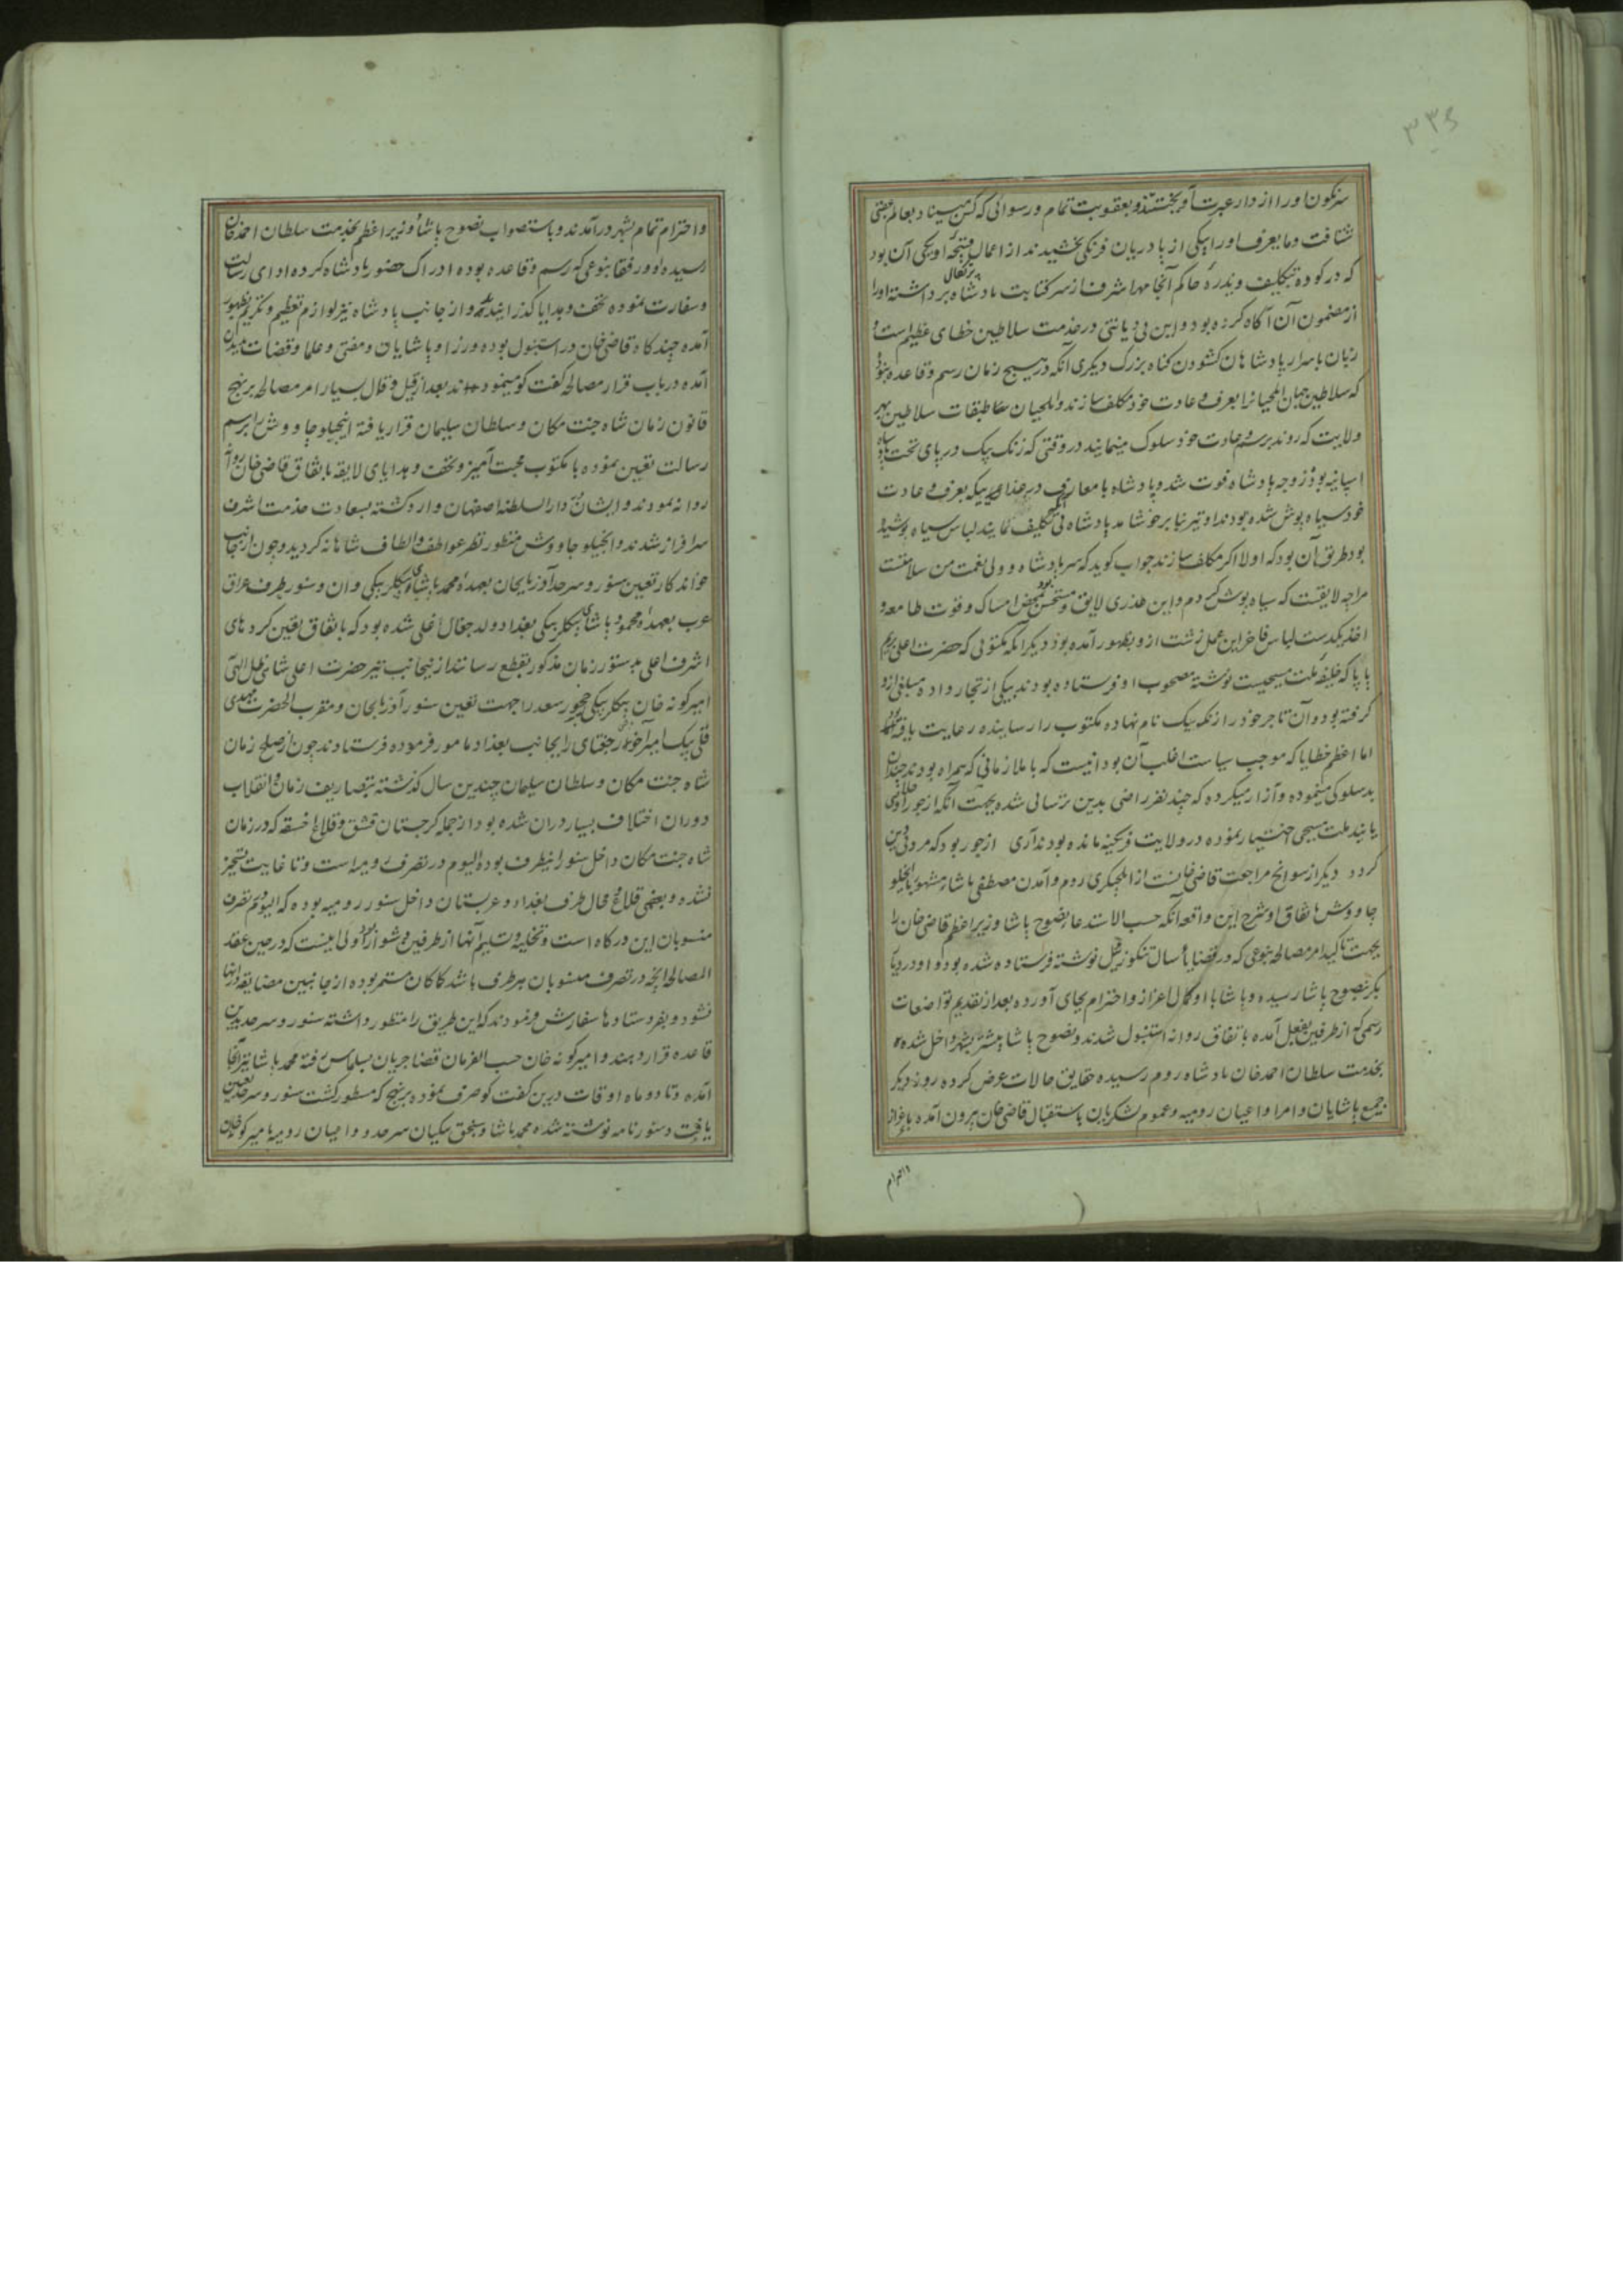 ۳۳۵
سرنگون اورا از دار عبرت آویختند و بعقوبت تمام و رسوائی که کس مبیناد بعالم عقبی
شتافت و مایعرف اورا بیکی از پادریان فرنگی بخشیدند از اعمال قبیحه او یکی آن بود
که در کوده بتکلیف ویذره حاکم آنجا مهر اشرف از سر کتابت پادشاه پرتکال برداشته اورا
از مضمون آن آگاه کرده بود و این بی دیانتی در خدمت سلاطین خطای عظیم است و
زبان باسرار پادشاهان گشودن گناه بزرگ دیگری آنکه در هیچ زمان رسم و قاعده نبوده
که سلاطین جهان ایلچیانرا بعرف و عادت خود مکلف سازند و ایلچیان علی طبقات سلاطین بهر
ولایت که روند برسم و عادت خود سلوک مینمایند در وقتی که دنگیز بیک در پای تخت پادشاه
اسپانیه بود زوجه پادشاه فوت شده و پادشاه با معارف در عزای بیکه بعرف و عادت
خود سیاه پوش شده بودند او نیز بنابر خوشامد پادشاه بی آنکه تکلیف نمایند لباس سیاه پوشیده
بود طریق آن بود که اولا اگر مکلف سازند جواب گوید که سر پادشاه و ولی نعمت من سلامتست
مرا چه لایقست که سیاه پوش گردم و این عذری لایق و مستحسن بود بمحض امساک و قوت طامعه و
اخذ یکدست لباس فاخر این عمل زشت ازو بظهور آمده بود دیگر آنکه مکتوبی که حضرت اعلی بریم
پاپا که خلیفه ملت مسیحیست نوشته مصحوب او فرستاده بودند بیکی از تجار داده مبلغی ازو
گرفته بود و آن تاجر خود را دنگیز بیک نام نهاده مکتوب را رسانیده رعایت یافته بود
اما اعظم خطایا که موجب سیاست اغلب آن بود اینست که با ملازمانی که همراه بودند چندان
بدسلوکی مینموده و آزار میکرده که چند نفر راضی بدین ترسائی شده بجهت آنکه از جور او خلاصی
یابند ملت مسیحی اختیار نموده در ولایت فرنگیه مانده بودند آری از جور بود که مرد بی دین
گردد دیگر از سوانح مراجعت قاضی خانست از ایلچیگری روم و آمدن مصطفی پاشاء مشهور بانجیلو
چاووش باتفاق او شرح این واقعه آنکه حسب الاستدعاء نصوح پاشا وزیر اعظم قاضی خان را
بجهت تأکید امر مصالحه بنوعی که در قضایاء سال تنکوزئیل نوشته فرستاده شده بود و او در دیا
بکر بنصوح پاشا رسیده و پاشا با او کمال اعزاز و احترام بجای آورده بعد از تقدیم تواضعات
رسمی که از طرفین بفعل آمده باتفاق روانه استنبول شدند و نصوح پاشا پیشتر بشهر داخل شده
بخدمت سلطان احمد خان پادشاه روم رسیده حقایق حالات عرض کرده روز دیگر
جمیع پاشایان و امرا و اعیان رومیه و عموم لشکریان باستقبال قاضی خان بیرون آمده باعزاز
واحترام
و احترام تمام بشهر درآمدند و باستصواب نصوح پاشاء وزیر اعظم بخدمت سلطان احمد خان
رسیده او و رفقا بنوعی که رسم و قاعده بوده ادراک حضور پادشاه کرده ادای رسالت
و سفارت نموده تحف و هدایا گذرانیدند و از جانب پادشاه نیز لوازم تعظیم و تکریم بظهور
آمده چند گاه قاضی خان در استنبول بوده وزرا و پاشایان و مفتی و علما و قضات میدان
آمده در باب قرار مصالحه گفت کو مینمودند بعد از قیل و قال بسیار امر مصالحه بر نهج
قانون زمان شاه جنت مکان و سلطان سلیمان قرار یافته انجیلو چاووش را برسم
رسالت تعیین نموده با مکتوب محبت آمیز و تحف و هدایای لایقه باتفاق قاضی خان
روانه نمودند و ایشان بدار السلطنه اصفهان وارد گشته بسعادت خدمت اشرف
سرافراز شدند و انجیلو چاووش منظور نظر عواطف و الطاف شاهانه گردید و چون از جانب
خواندکار تعیین سنور و سرحد آذربایجان بعهده محمد پاشای بیکلربیکی وان و سنور طرف عراق
عرب بعهده محمود پاشای بیکلربیکی بغداد ولد جغال اغلی شده بود که باتفاق تعین کردهای
اشرف اعلی بدستور زمان مذکور بقطع رسانند از نیجانب نیز حضرت اعلی شاهی ظل اللهی
امیرکونه خان بیکلربیکی چخور سعد را جهت تعین سنور آذربایجان و مقرب الحضرت مهدی
قلی بیک امیرآخور جغتای را بجانب بغداد مامور فرموده فرستادند چون از صلح زمان
شاه جنت مکان و سلطان سلیمان چندین سال گذشته بتصاریف زمان و انقلاب
دوران اختلاف بسیار در آن شده بود از جمله گرجستان مسق و قلاع اخسقه که در زمان
شاه جنت مکان داخل سنور اینطرف بوده الیوم در تصرف رومیه است و تا غایت تسخیر
نشده و بعضی قلاع و محال طرف بغداد و عربستان داخل سنور رومیه بوده که الیوم بتصرف
منسوبان این درگاه است و تخلیه و تسلیم آنها از طرفین دشوار بود اولی اینست که در حین عقد
المصالحه آنچه در تصرف منسوبان هر طرف باشد کاکان مستمر بوده از جانبین مضایقه در آنها
نشود و بفرستادها سفارش فرمودند که این طریق را منظور داشته سنور و سرحد بدین
قاعده قرار دهند و امیرکونه خان حسب الفرمان قضا جریان بسلماس رفته محمد پاشا نیز آنجا
آمده و تا دو ماه اوقات درین گفت کو صرف نموده بر نهج که مسطور گشت سنور و سرحد تعیین
یافت و سنورنامه نوشته شده محمد پاشا و سنجق بیکیان سرحد و اعیان رومیه با امیرکونه خان